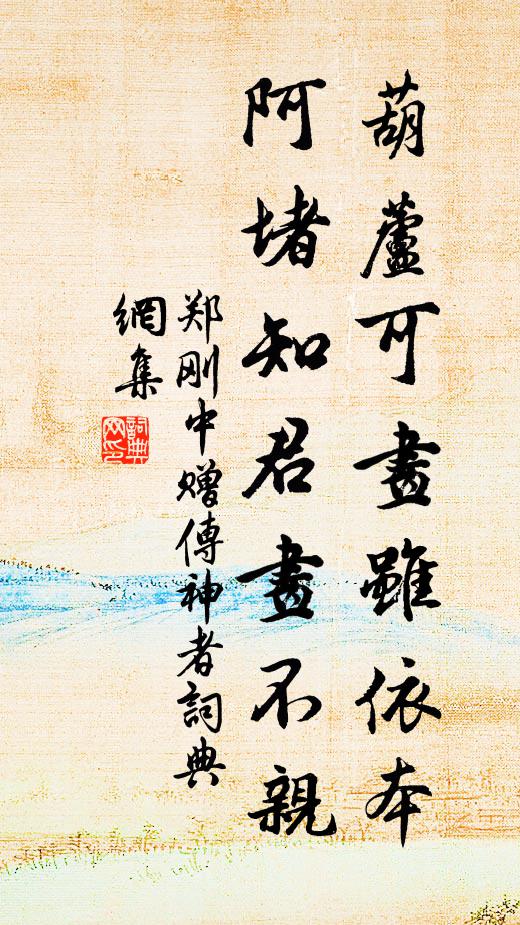 葫蘆可畫雖依本
阿堵知君畫不親
郑刚中赠傳神者詞典
網集
詞典
网印